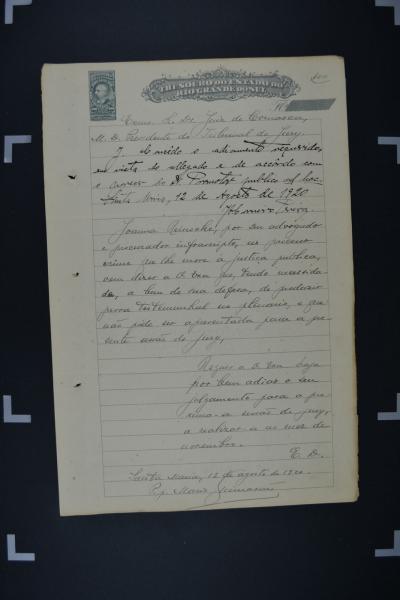 THESOURO DO ESTADO DO
RIO GRANDE DO SUL
Exmo. Sr. Dr. Juiz de Comarca,
M. D. Presidente do Tribunal do Jury.
J. o adiamento requerido,
em vista do allegado e de accôrdo com
o do Dr. Promotor publico
Santa Maria, 12 de Agosto de 1920
Joanna, por seu advogado
e procurador infrascripto, no processo
crime que lhe move a justiça publica,
vem dizer a V. Exa. que, tendo necessida-
de, a bem de sua defesa, de produzir
prova testemunhal no plenario, e que
não póde ser apresentada para a pre-
sente sessão do jury,
Requer a V. Exa. haja
por bem adiar o seu
julgamento para a pro-
xima sessão do jury,
a realizar-se no mez de
novembro.
E. D.
Santa Maria, 12 de agosto de 1920.
Pp. Mario